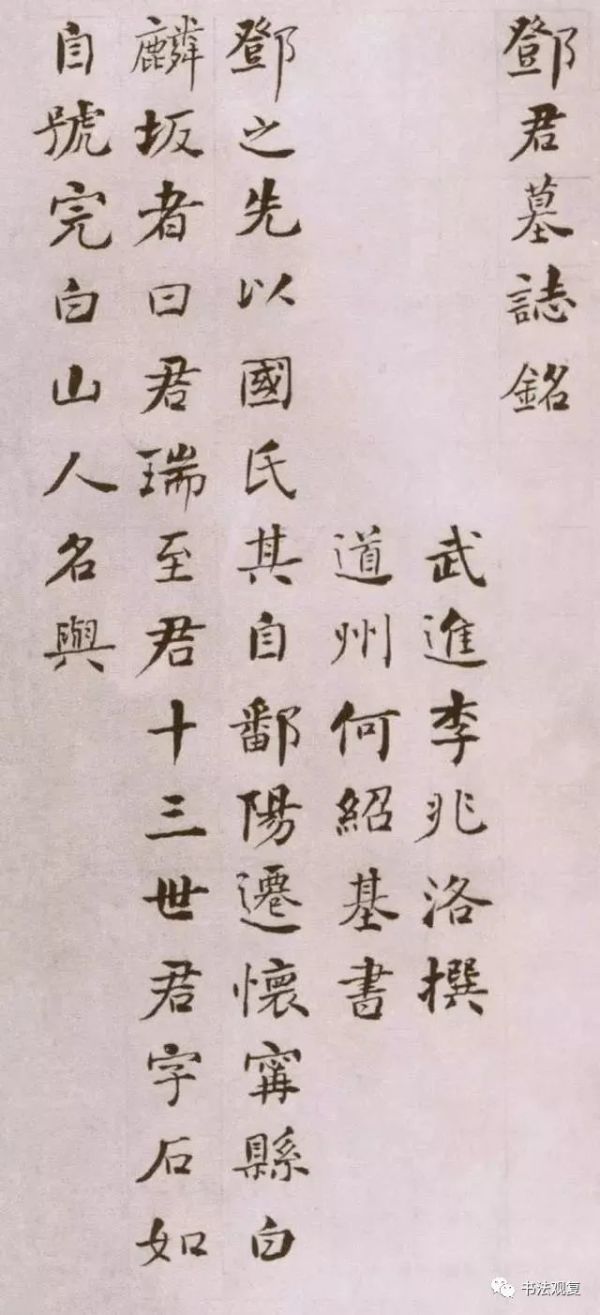 鄧君墓誌銘
武進李兆洛撰
道州何紹基書
鄧之先以國氏其自鄱陽遷懷甯縣白
麟坂者曰君瑞至君十三世君字石如
自號完白山人名與
书法观复